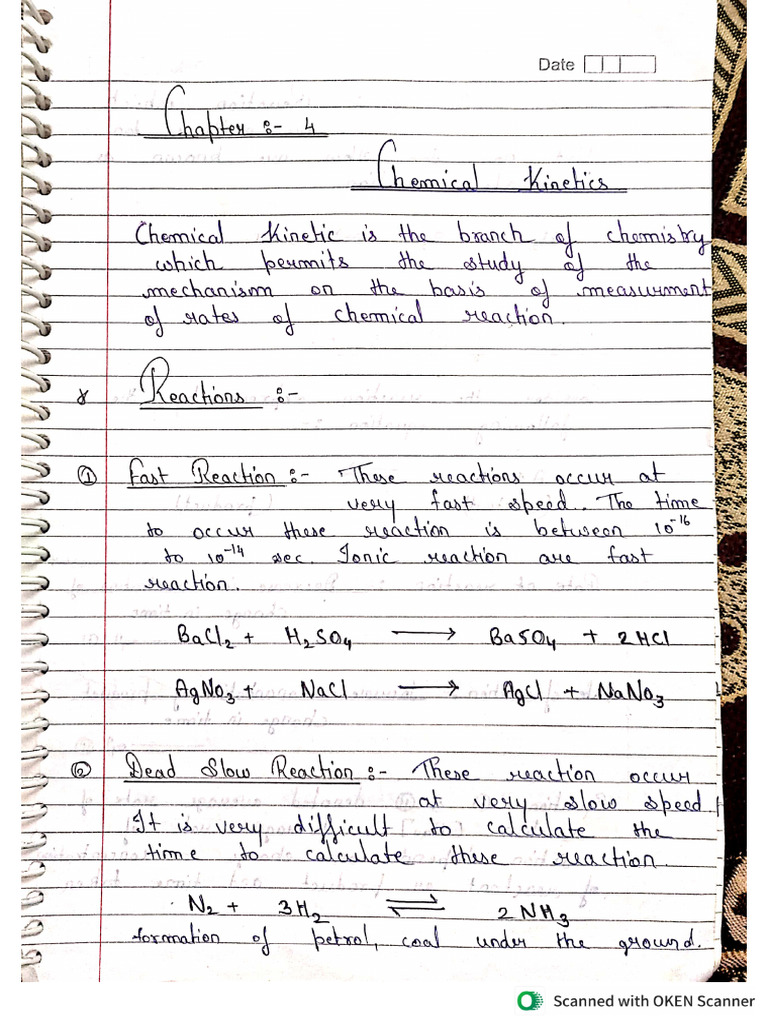 Date
Chapter :- 4
Chemical Kinetics
Chemical Kinetic is the branch of chemistry
which permits the study of the
mechanism on the basis of measurment
of rates of chemical reaction.
Reactions :-
① Fast Reaction :- These reactions occur at
very fast speed. The time
to occur these reaction is between 10⁻¹⁶
to 10⁻¹⁴ sec. Ionic reaction are fast
reaction.
BaCl₂ + H₂SO₄ ⟶ BaSO₄ + 2HCl
AgNO₃ + NaCl ⟶ AgCl + NaNO₃
② Dead Slow Reaction :- These reaction occur
at very slow speed
It is very difficult to calculate the
time to calculate these reaction.
N₂ + 3H₂ ⇌ 2NH₃
formation of petrol, coal under the ground.
Scanned with OKEN Scanner